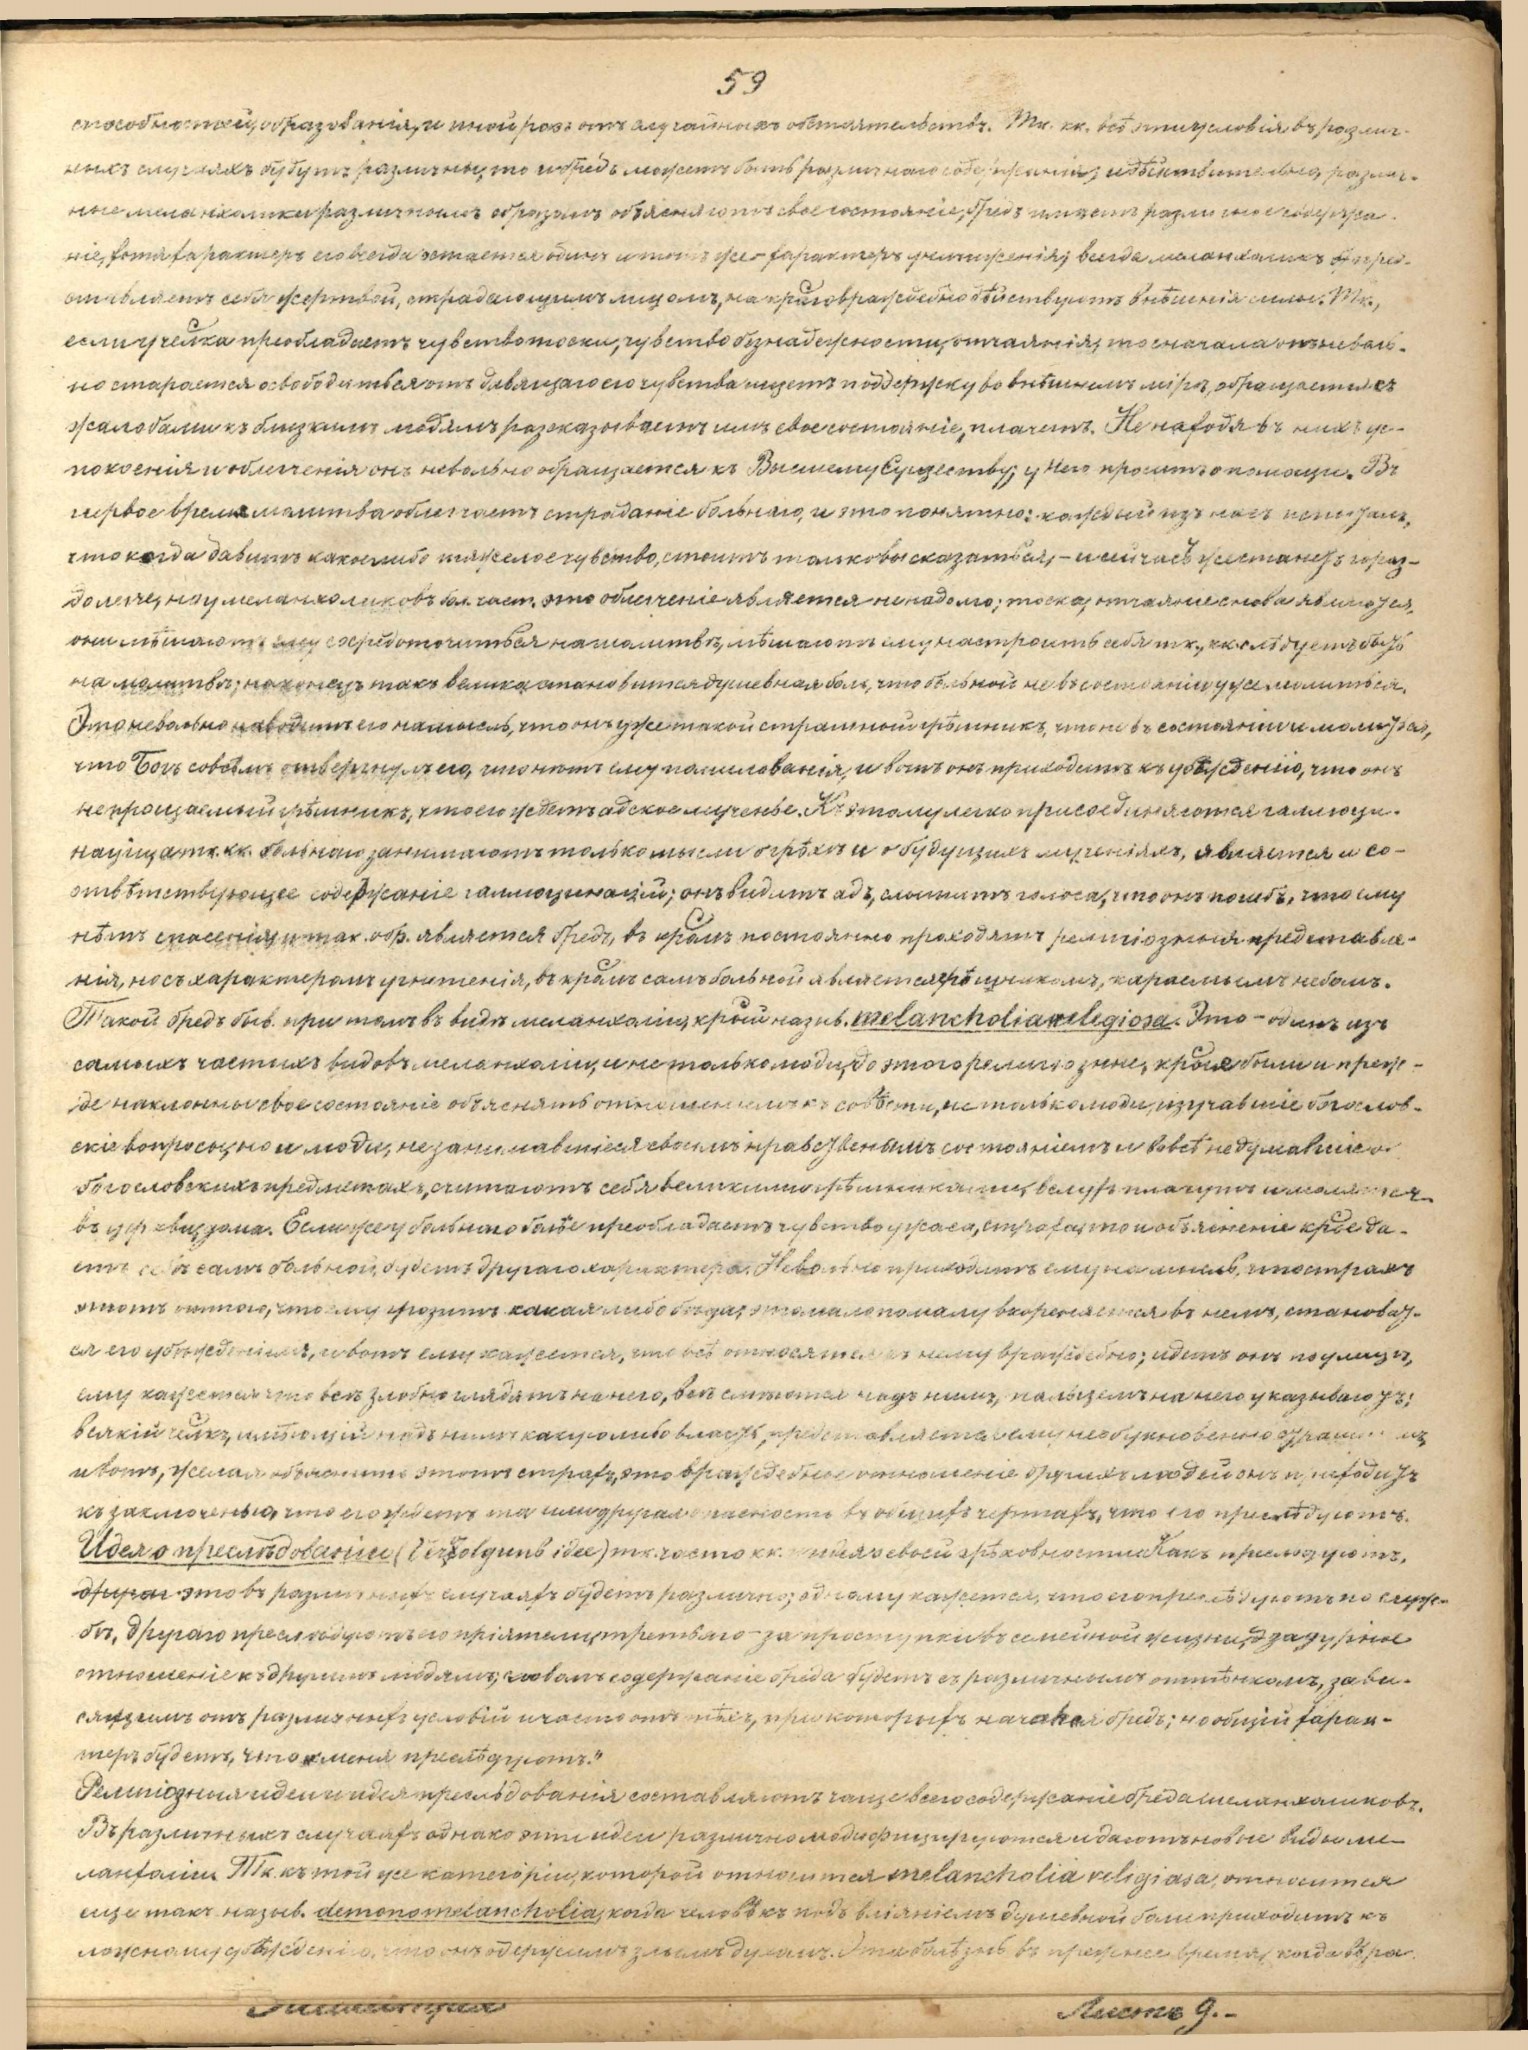 59
способностей, образованія, и иной разъ отъ случайныхъ обстоятельствъ. Тк. кк. всѣ эти условія въ различ-
ныхъ случаяхъ будутъ различны, то и бредъ можетъ быть различнаго содержанія; и дѣйствительно, различ-
ные меланхолики различнымъ образомъ объясняютъ свое состояніе, бредъ имѣетъ различное содержа-
ніе, хотя характеръ его всегда остается одинъ и тотъ же – характеръ униженія; всегда меланхоликъ пред-
ставляетъ себя жертвой, страдающимъ лицомъ, на крго враждебно дѣйствуютъ внѣшнія силы. Тк.,
если у челка преобладаетъ чувство тоски, чувство безнадежности, отчаянія, то сначала онъ неволь-
но старается освободиться отъ давящаго его чувства, ищетъ поддержку во внѣшнемъ мірѣ, обращается съ
жалобами къ близкимъ людямъ, разсказываетъ имъ свое состояніе, плачетъ. Не находя въ нихъ ус-
покоенія и облегченія онъ невольно обращается къ Высшему Существу; у Него проситъ о помощи. Въ
первое время молитва облегчаетъ страданіе больнаго, и это понятно: каждый изъ насъ испыталъ,
что когда давитъ какое либо тяжелое чувство, стоитъ только высказаться, – и сейчасъ же станетъ гораз-
до легче, но у меланхоликовъ бол. част. это облегченіе является не надолго; тоска, отчаяніе снова являются,
они мѣшаютъ ему сосредоточиться на молитвѣ, мѣшаютъ ему настроить себя тк., кк. слѣдуетъ быть
на молитвѣ; наконецъ такъ велика становится душевная боль, что больной не въ состояніи уже молиться.
Это невольно наводитъ его на мысль, что онъ уже такой страшный грѣшникъ, что не въ состояніи и молиться,
что Богъ совсѣмъ отвергнулъ его, что нѣтъ ему помилованія, и вотъ онъ приходитъ къ убѣжденію, что онъ
непрощаемый грѣшникъ, что его ждетъ адское мученье. Къ этому легко присоединяются галлюци-
націи, а тк. кк. больнаго занимаютъ только мысли о грѣхѣ и о будущихъ мученіяхъ, является и со-
отвѣтствующее содержаніе галлюцинацій; онъ видитъ адъ, слышитъ голоса, что онъ погибъ, что ему
нѣтъ спасенія, и так. обр. является бредъ, въ кромъ постоянно проходятъ религіозныя представле-
нія, но съ характеромъ угнетенія, въ кромъ самъ больной является грѣшникомъ, караемымъ небомъ.
Такой бредъ быв. при томъ видѣ меланхоліи, крый назыв. melancholia religiosa. Это – одинъ изъ
самыхъ частыхъ видовъ меланхоліи, и не только люди, до этого религіозные, крые были и преж-
де наклонны свое состояніе объяснять отношеніемъ къ совѣсти, не только люди, изучавшіе богослов-
скіе вопросы, но и люди, не занимавшіеся своимъ нравственнымъ состояніемъ и вовсе не думавшіе о
богословскихъ предметахъ, считаютъ себя великими грѣшниками,
Если же у больнаго болѣе преобладаетъ чувство ужаса, страха, то и объясненіе крое да-
етъ себѣ самъ больной, будетъ другаго характера. Невольно приходитъ ему на мысль, что страхъ
этотъ оттого, что ему грозитъ какая либо бѣда, это мало по малу вкореняется въ немъ, становит-
ся его убѣжденіемъ, и вотъ ему кажется, что всѣ относятся къ нему враждебно; идетъ онъ по улицѣ,
ему кажется что всѣ злобно глядятъ на него, всѣ смѣются надъ нимъ, пальцемъ на него указываютъ;
всякій челкъ, имѣющій надъ нимъ какую либо власть, представляется ему необыкновенно
и вотъ, желая объяснить этотъ страхъ, это враждебное отношеніе другихъ людей онъ приходитъ
къ заключенью, что его ждетъ та или другая опасность въ общихъ чертахъ, что его преслѣдуютъ.
Идея о преслѣдованіи (Verfolgungs idee) тк. часто кк. и идея о своей грѣховности. Какъ преслѣдуютъ,
это въ различныхъ случаяхъ будетъ различно; одному кажется, что его преслѣдуютъ по служ-
бѣ, другаго преслѣдуютъ его пріятели, третьяго – за проступки въ семейной жизни, за дурное
отношеніе къ другимъ людямъ; словомъ содержаніе бреда будетъ съ различнымъ оттѣнкомъ, зави-
сящимъ отъ различныхъ условій и часто отъ тѣхъ, при которыхъ начался бредъ; но общій харак-
теръ будетъ, что „меня преслѣдуютъ.“
Религіозныя идеи и идея преслѣдованія составляютъ чаще всего содержаніе бреда меланхоликовъ.
Въ различныхъ случаяхъ однако эти идеи различно модифицируются и даютъ новые виды ме-
ланхоліи. Тк. къ той же категоріи, которой относится melancholia religiosa, относится
еще такъ назыв. demonomelancholia, когда человѣкъ подъ вліяніемъ душевной боли приходитъ къ
ложному убѣжденію, что онъ одержимъ злымъ духомъ. Эта болѣзнь въ прежнее время, когда вѣра
Листъ 9.–